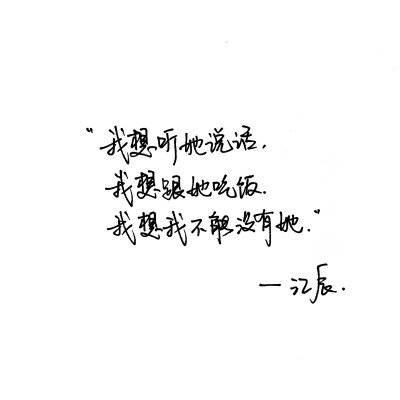 “我想听她说话，
我想跟她吃饭.
我想我不能没有她.”
— 江辰.